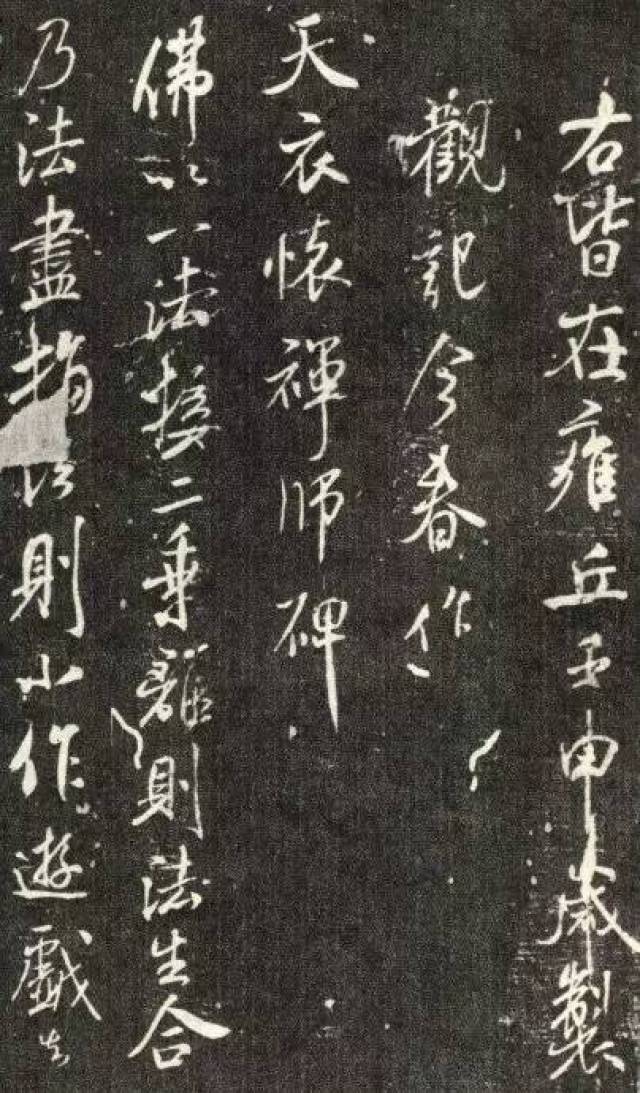 右皆在雍丘壬申歲製
觀記今春作
天衣懷禪師碑
佛以一法接二乘離則法生合
乃法盡指則小作遊戲